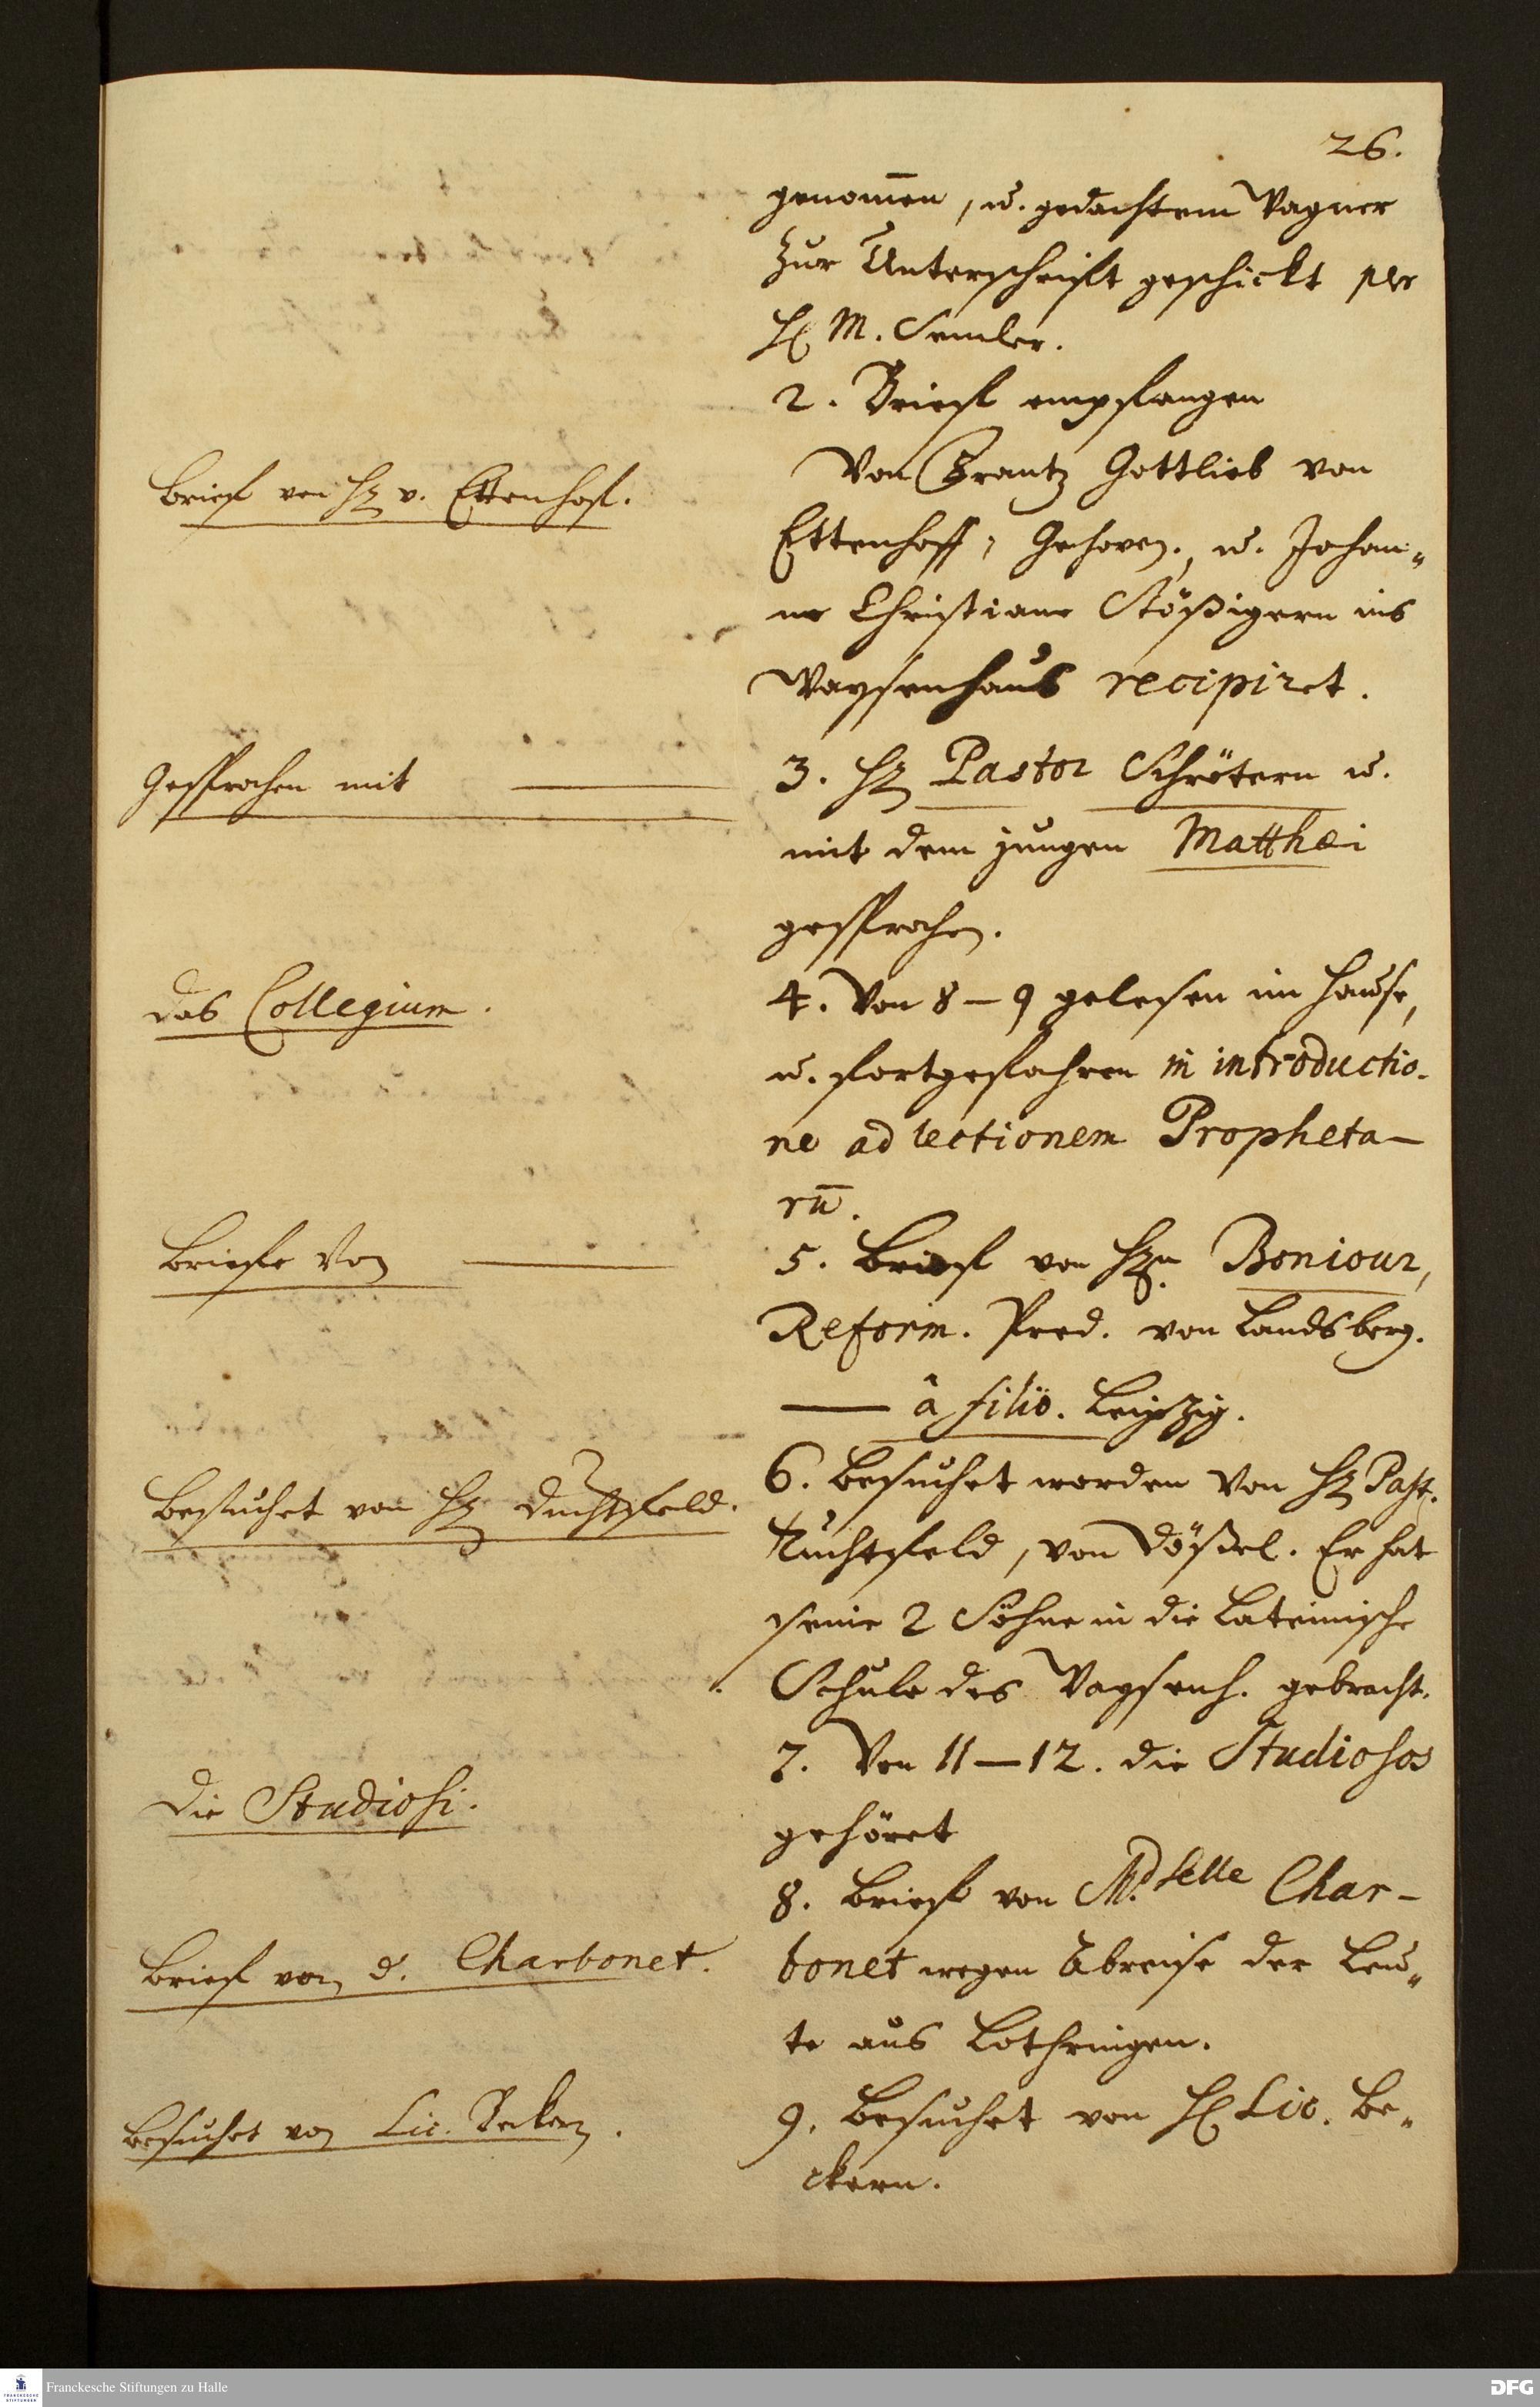 26.
genom̄en, u. gedachtem Wagner
zur Unterschrifft geschickt per
H. M. Semler.
2. Brieff empfangen
Brieff von H. v. Ettenhoff.
Von Frantz Gottlieb von
Ettenhoff, Gehoven., u. Johan„
ne Christiane Stößigern ins
Waysenhauß recipiret.
Gesprochen mit
3. H. Pastor Schrötern u.
mit dem jungen Matthæi
gesprochen.
das Collegium.
4. Von 8–9 gelesen im Hause,
u. fortgefahren in introductio-
ne ad lectionem Propheta-
rū.
Brieffe Von
5. Brieff von H.n Boniour,
Reform. Pred. von Landsberg.
— â filiô. Leipzig.
Besuchet von H. Duchtfeld.
6. Besuchet worden Von H. Past.
Tuchtfeld, von Dößel. Er hat
seine 2 Söhne in die Lateinische
Schule des Waysenh. gebracht.
Die Studiosi.
7. Von 11–12. die Studiosos
gehöret
8. Brieff von Md.selle Char-
Brieff von d. Charbonet.
bonet wegen Abreise der Leu„
te aus Lothringen.
Besuchet von Lic. Beckern.
9. Besuchet von H. Lic. Be„
ckern.
FRANCKESCHE STIFTUNGEN
Franckesche Stiftungen zu Halle
DFG